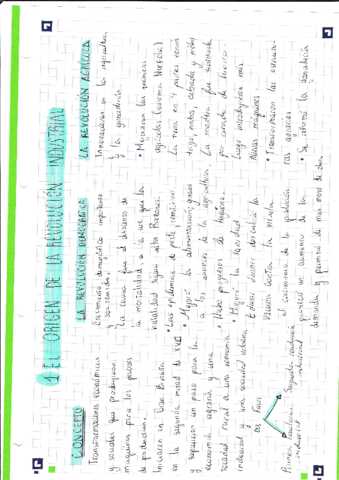 1 EL ORIGEN DE LA REVOLUCIÓN INDUSTRIAL
CONCEPTO
Transformaciones económicas
y sociales que produjeron
máquinas para los
de producción.
Iniciaron en Gran Bretaña
en la segunda mitad de XVIII
y supusieron un paso para la
economía agraria y una
sociedad rural a una economía
industrial y una sociedad urbana
Dos fases
Primera revolución industrial
Segunda revolución industrial
LA REVOLUCIÓN DEMOGRÁFICA
Crecimiento demográfico importante
y sostenido
La causa fue el descenso de
la mortalidad a la vez que la
natalidad siguió alta. Razones:
• Las epidemias de peste
• Mejoró la alimentación, gracias
a los avances de la agricultura
• Hubo progresos de higiene
• Mejoró la sanidad
Edward Jenner descubrió la
vacuna contra la viruela
El crecimiento de la población
provocó un aumento de la
demanda y
mano de obra
LA REVOLUCIÓN AGRÍCOLA
Innovaciones en la agricultura
y la ganadería
• Mejoraron las técnicas
agrícolas (sistema Norfolk)
La tierra en 4 partes
trigo, nabos, cebada y
La madera fue sustituida
por arado de hierro
Luego introdujeron más
nuevas máquinas
• Transformaron las
agrícolas
• Se reformó la ganadería